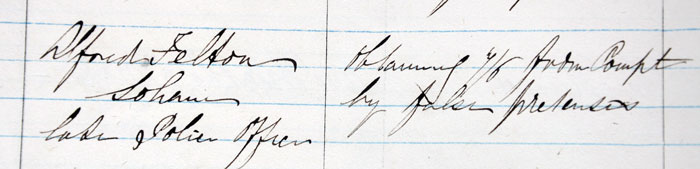 Alfred Felton
Soham
late Police Officer
Obtaining 4/6 from Compt
by false pretenses